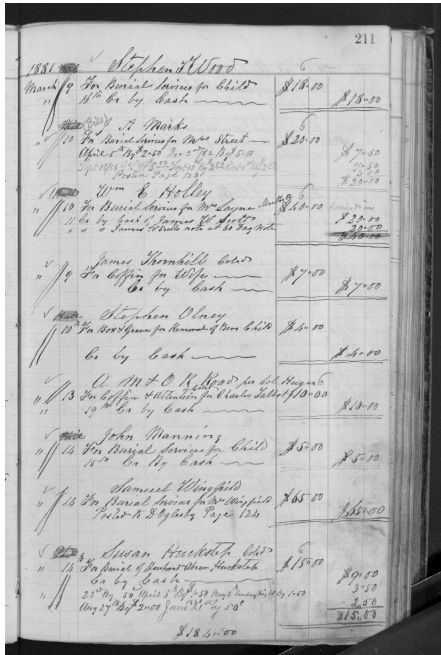 211
1881 Stephen F Wood 6
March 9 For Burial Services for Child $18.00
15th Cr by Cash $18.00
A Marks 6
" 10 For Burial Services for Mrs Street $20.00
April 5th By $2.50 $7.50
Posted Page 128 $20.00
Wm E Holley 6
" 10 For Burial Services for Mrs Layne $40.00
11 Cr by Cash of James W Scott $20.00
" " James note at 60 Day Note 20.00
$40.00
James Thornhill Cold
" 9 For Coffin for Wife $7.00
Cr by Cash $7.00
Stephen Olney
" 10th For Box & Grave for Removal of Bros Child $4.00
Cr by Cash $4.00
A M & O R Road per Col Huger 6
" 13 For Coffin & Attention for Charles Talbot $10.00
19th Cr by Cash $10.00
John Manning
" 14 For Burial Services for Child $5.00
15th Cr By Cash $5.00
Samuel Wingfield
" 14 For Burial Services for Mr Wingfield $65.00
Posted to R D Oglesby Page 124 $65.00
Susan Huckstep Cold
" 14 For Burial of Huckstep $15.00
Cr by Cash $9.00
25th By 50 April 5 By $1.50 3.50
Aug 27th By $2.00 2.50
$15.00
$184.00